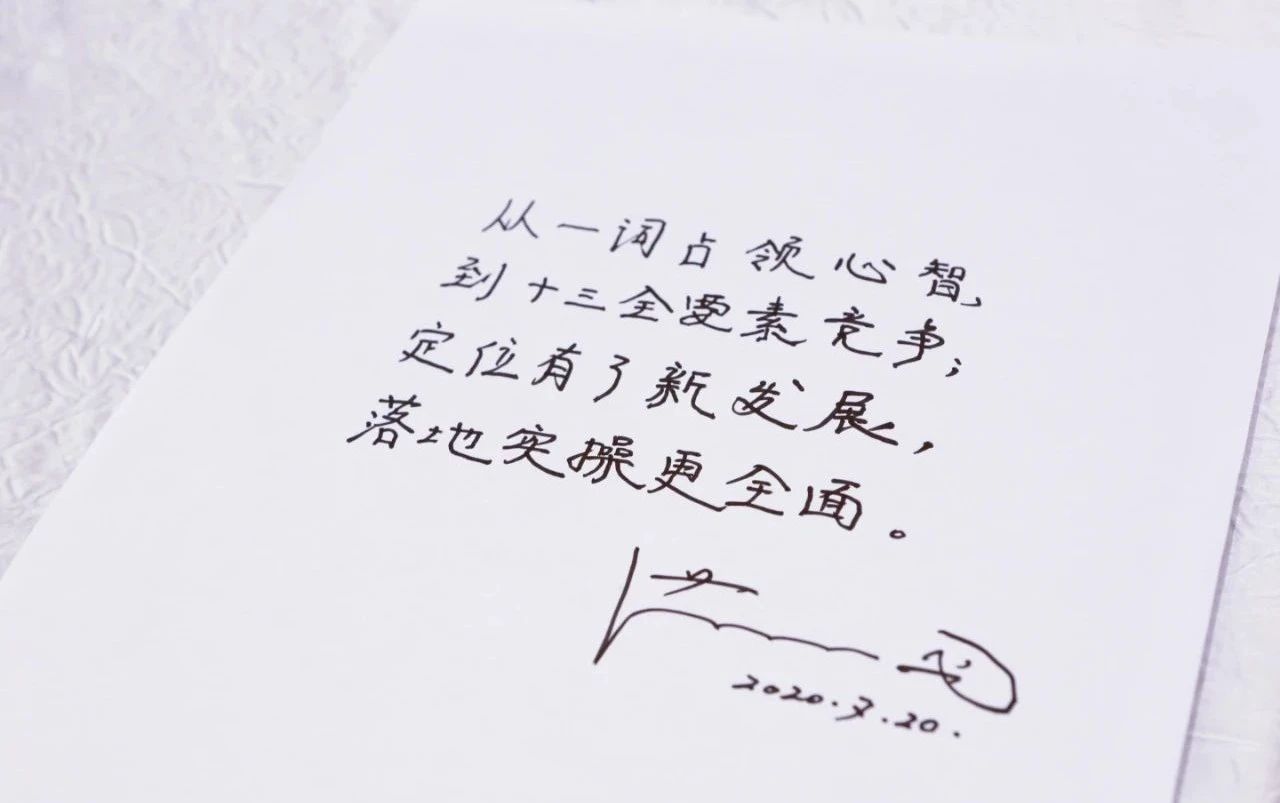 从一词占领心智,
到十三全要素竞争;
定位有了新发展,
落地实操更全面。
2020.7.20.